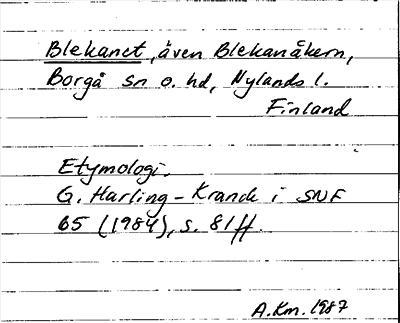 Blekanet, även Blekanåkern,
Borgå sn o. hd, Nylands l.
Finland
Etymologi.
G. Harling-Kranck i SNF
65 (1984), s. 81ff.
A.Km. 1987